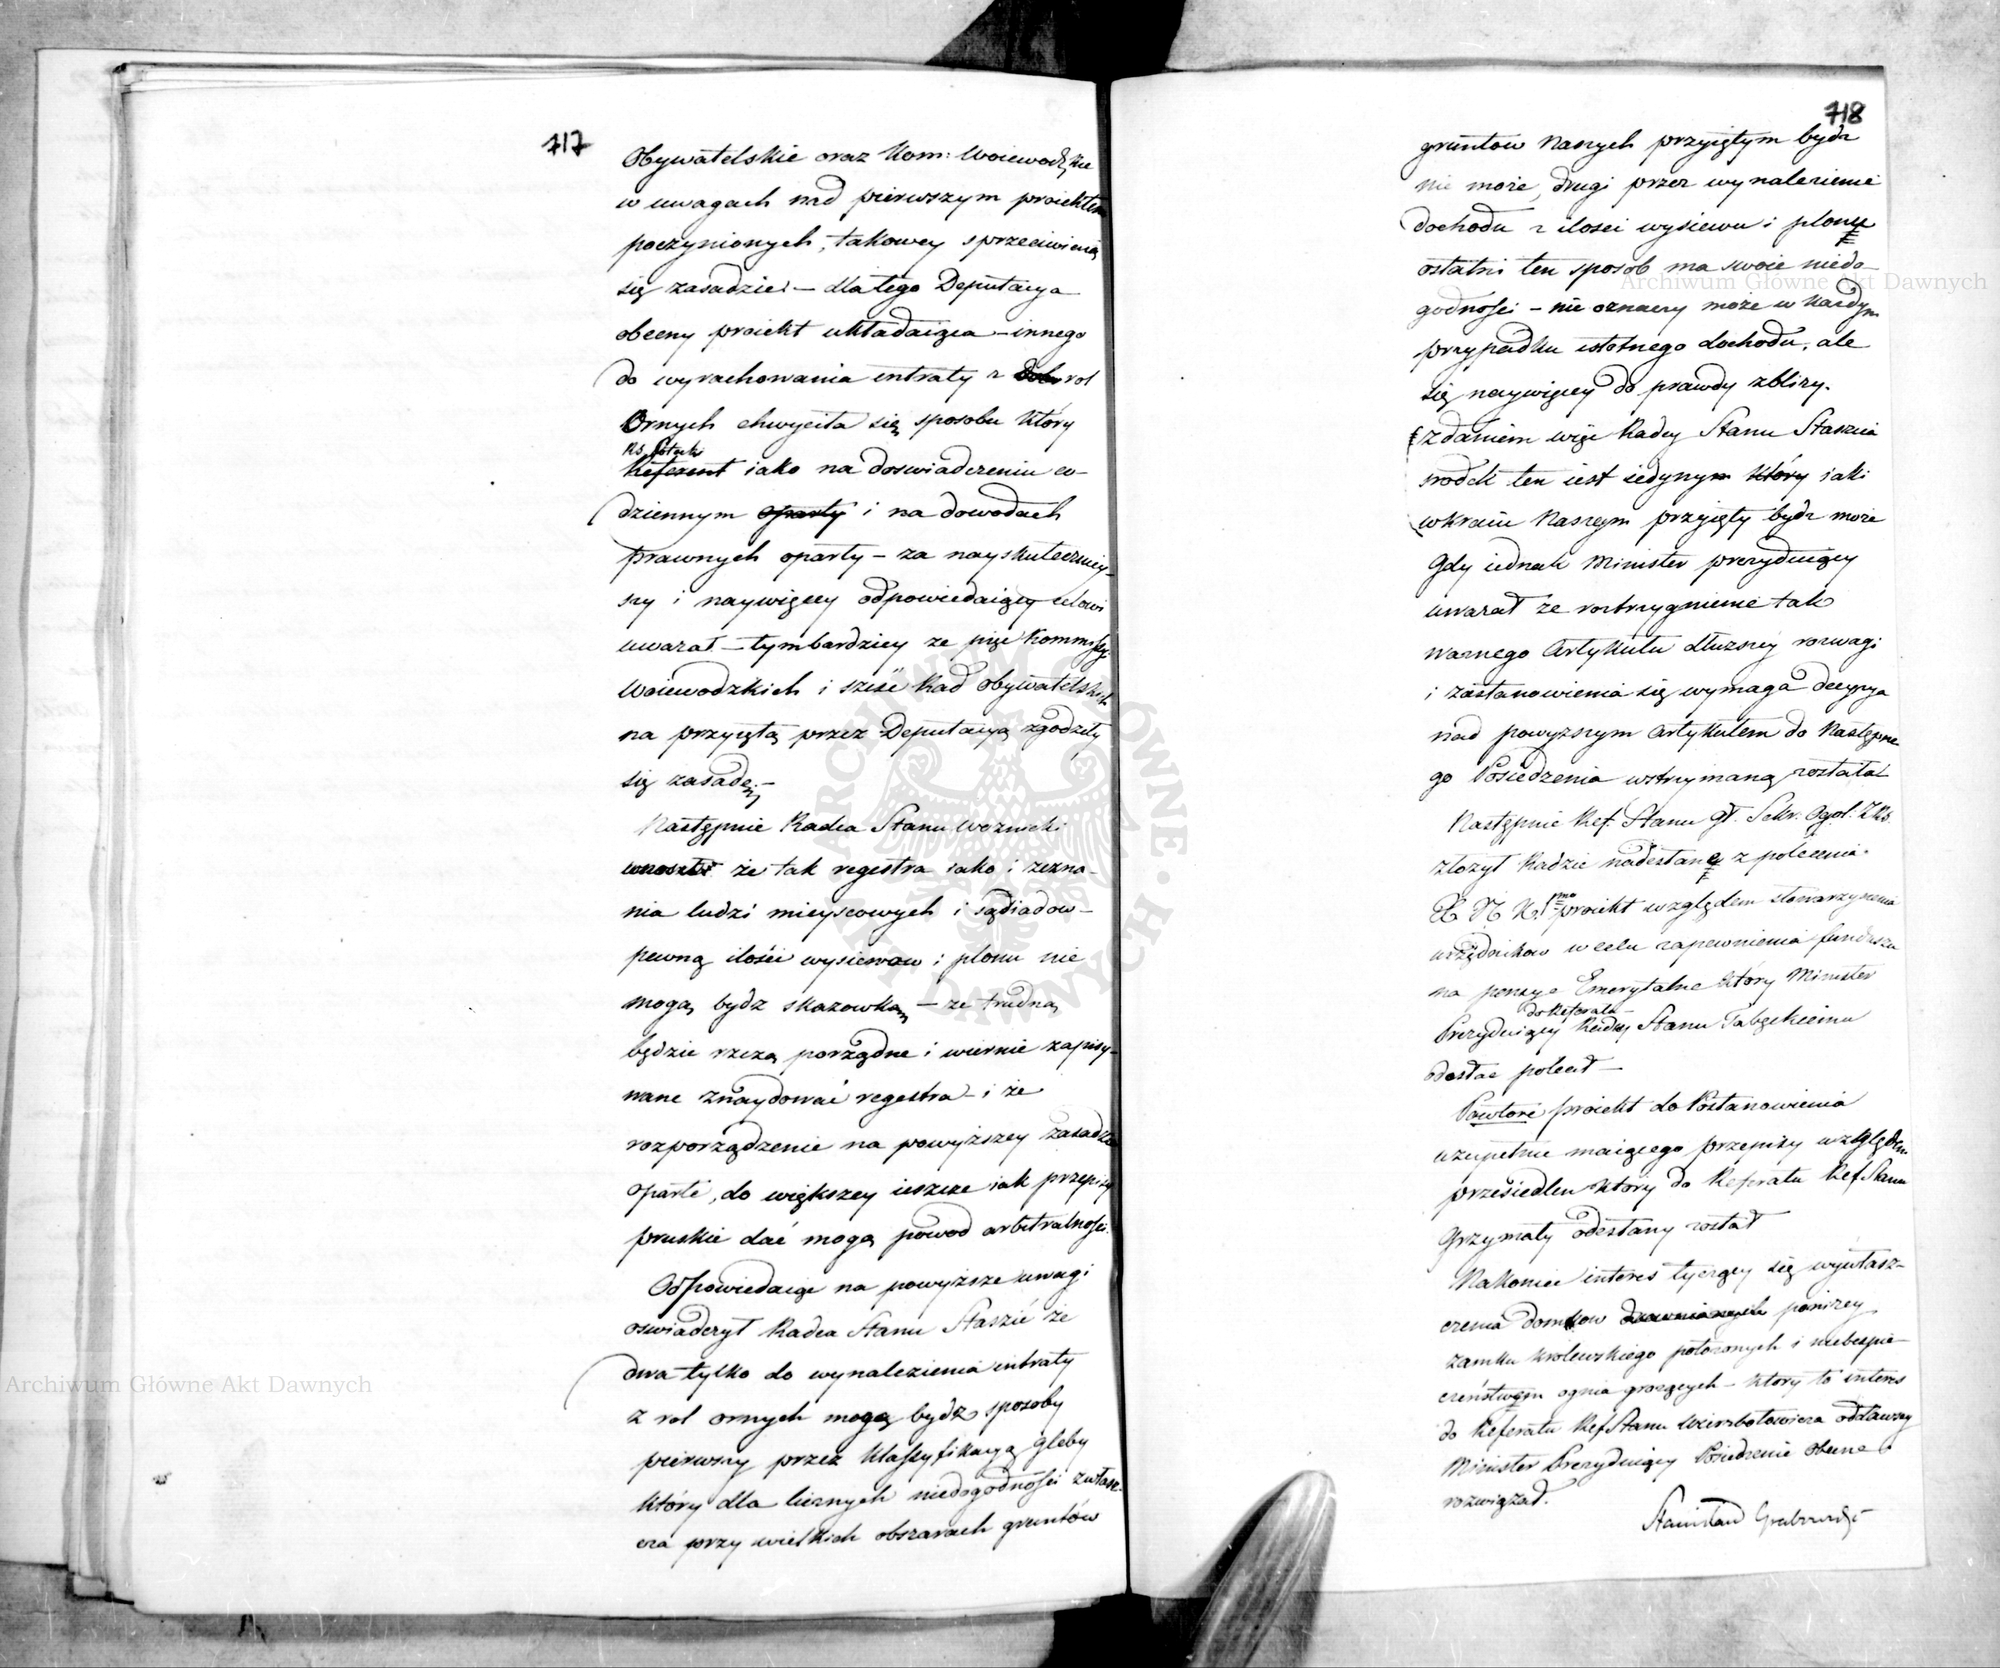 717
Obywatelskie oraz Kom: Woiewodzkie
w uwagach nad pierwszym proiektem
poczynionych, takowey sprzeciwiaią
się zasadzie: – dla tego Deputacya
obecny proiekt układaiąca – innego
do wyrachowania intraty z dobr rol
Ornych chwyciła się sposobu który
Rs.
Referent iako na doswiadczeniu co-
dziennym oparty i na dowodach
prawnych oparty – za nayskuteczniey-
szy i naywięcey odpowiedaiący celowi
uwarał – tymbardziey ze pięć Kommissyi
Woiewodzkich i sześć Rad Obywatelskich
na przyiętą przez Deputacyą zgodziły
się zasadę. –
Następnie Radca Stanu Woznicki
wnosił że tak regestra iako i zezna-
nia ludzi mieyscowych i sąsiadow –
pewną ilości wysiewow i plonu nie
mogą bydz skazowką – ze trudną
będzie rzeczą porządne i wiernie zapisy-
wane znaydować regestra – i że
rozporządzenie na powyższey zasadzie
oparte, do większey ieszcze iak przepisy
pruskie dać mogą powod arbitralności.
Odpowiedaiąc na powyższe uwagi
oswiadczył Radca Stanu Staszic że
dwa tylko do wynalezienia intraty
z rol ornych mogą bydz sposoby
pierwszy przez klassyfikacyą gleby
który dla licznych niedogodności zwłasz-
cza przy wielkich obszarach gruntów
718
gruntow naszych przyiętym bydz
nie może, drugi przez wynalezienie
dochodu z ilosci wysiewu i plonu
ostatni ten sposob ma swoie niedo-
godności – nie oznaczy może w każdym
przypadku istotnego dochodu, ale
się naywięcey do prawdy zbliży.
zdaniem więc Radcy Stanu Staszica
srodek ten iest iedynym który iaki
w kraiu naszym przyięty bydz może
Gdy iednak Minister prezyduiący
uwarał ze rostrzygnienie tak
warnego Artykułu dłuzszey rozwagi
i zastanowienia się wymaga decyzya
nad powyzszym artykułem do następne-
go Posiedzenia wstrzymaną została
Następnie Ref. Stanu Gł. Sekr. Ogol.
złożył Radzie nadesłany z polecenia
X N K proiekt względem stowarzyszenia
urzędnikow w celu zapewnienia funduszu
na pensye Emerytalne który Minister
do Referatu
Prezyduiący Radcy Stanu Tabęckiemu
odesłac polecił –
Powtore proiekt do Postanowienia
uzupełnić maiącego przepisy względem
przesiedleń który do Referatu Ref Stanu
Grzymały odesłany został
Nakoniec interes tyczący się wywłasz-
czenia domkow drewnianych poniżey
zamku krolewskiego położonych i niebespie-
czeństwem ognia grożących – który to interes
do Referatu Ref Stanu Wierzbołowicza oddawszy
Minister Prezyduiący Posiedzenie obecne
rozwiązał.
Stanisław Grabowski
Archiwum Główne Akt Dawnych
Archiwum Główne Akt Dawnych
ARCHIWUM GŁÓWNE AKT DAWNYCH